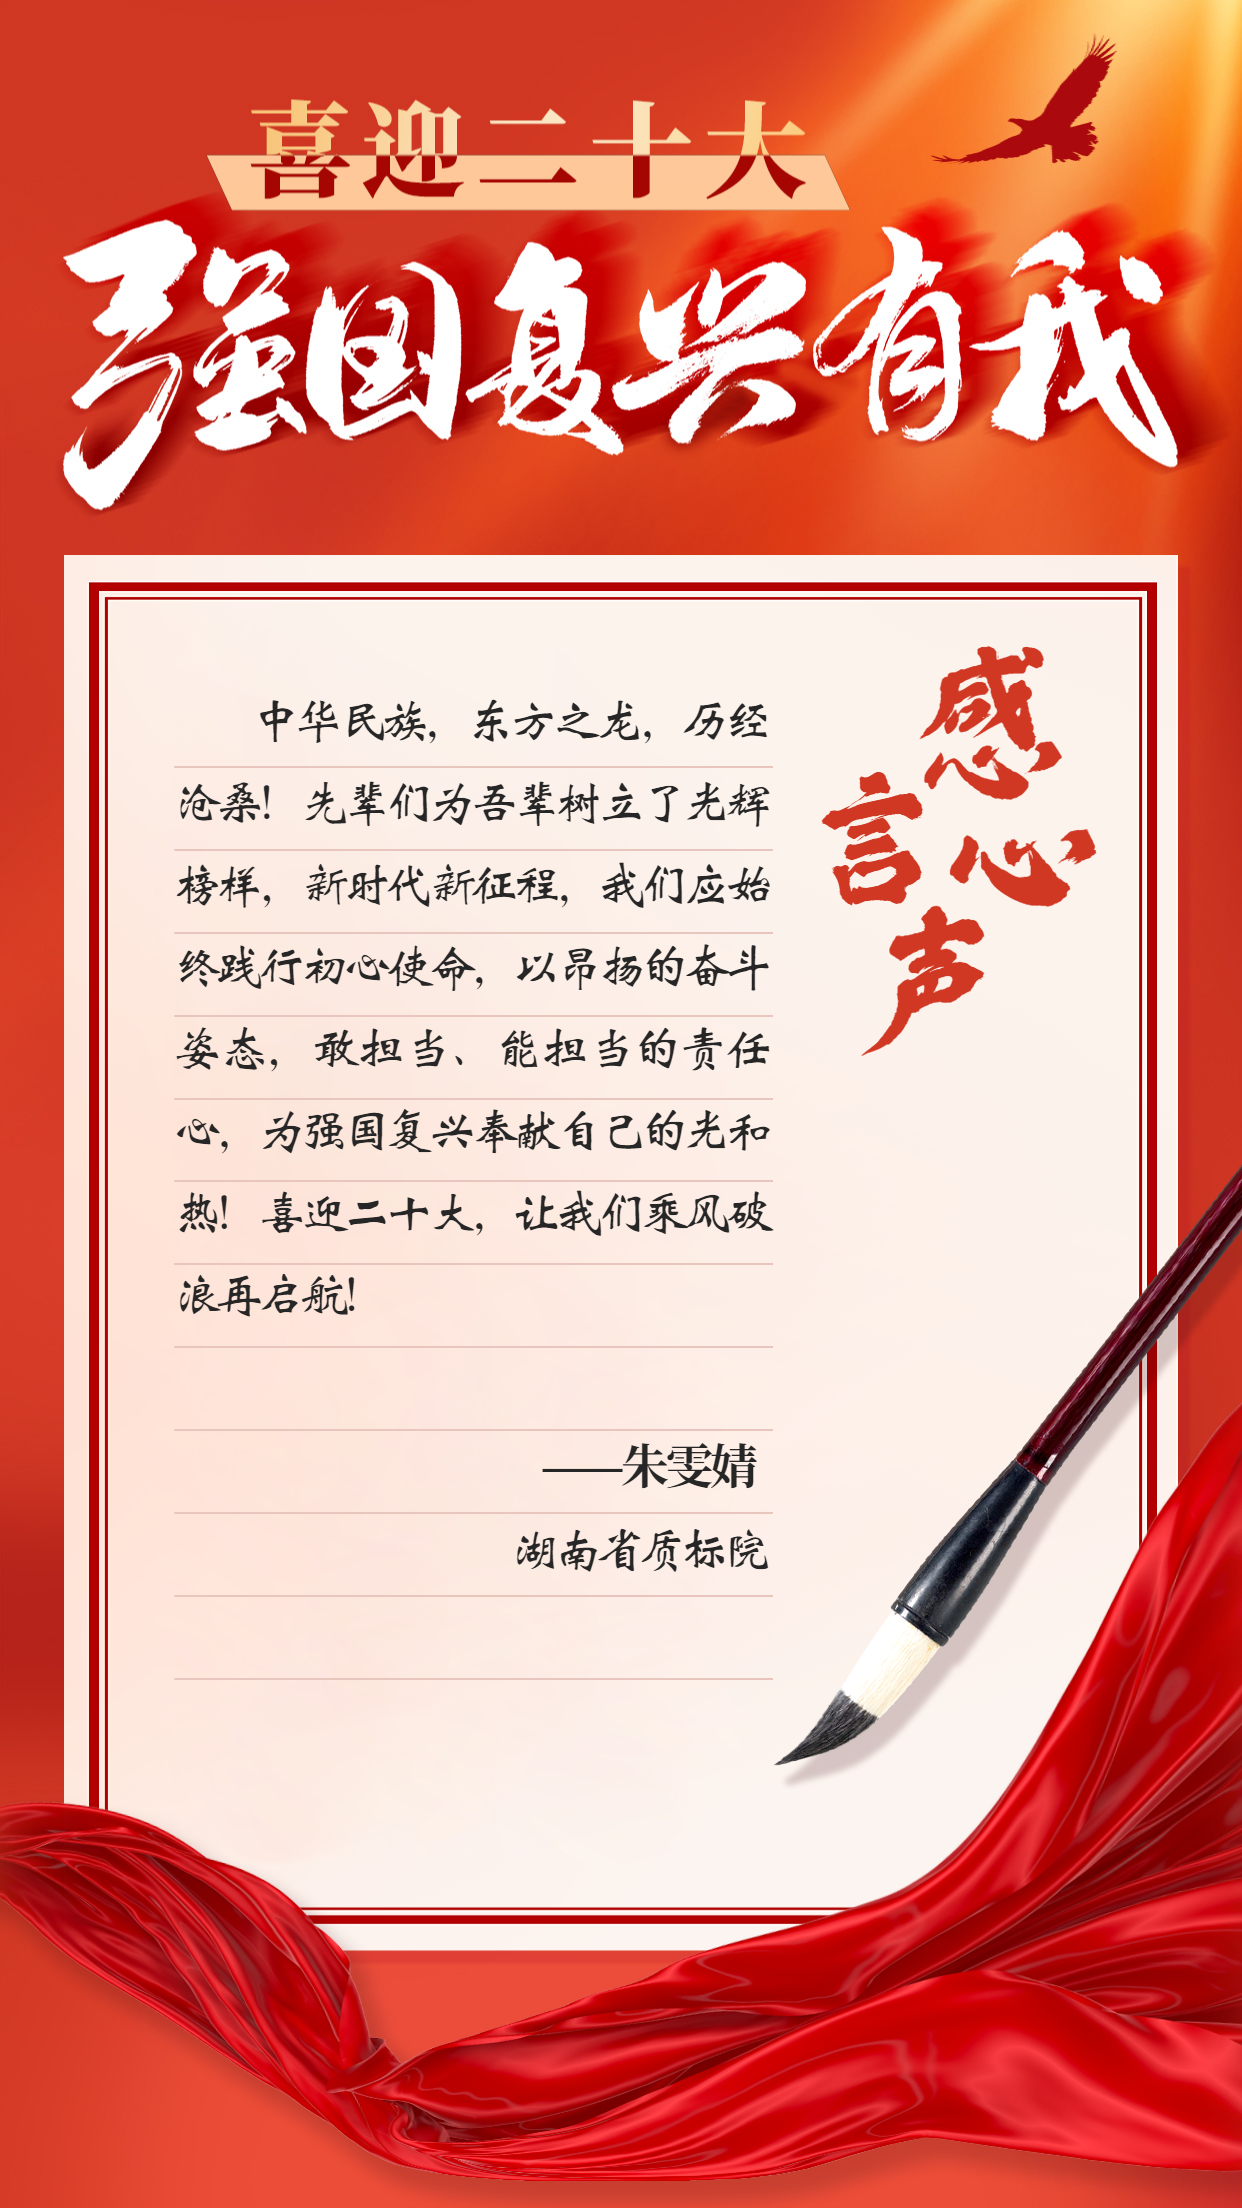 喜迎二十大
强国复兴有我
感言心声
中华民族，东方之龙，历经
沧桑！先辈们为吾辈树立了光辉
榜样，新时代新征程，我们应始
终践行初心使命，以昂扬的奋斗
姿态，敢担当、能担当的责任
心，为强国复兴奉献自己的光和
热！喜迎二十大，让我们乘风破
浪再启航！
——朱雯婧
湖南省质标院